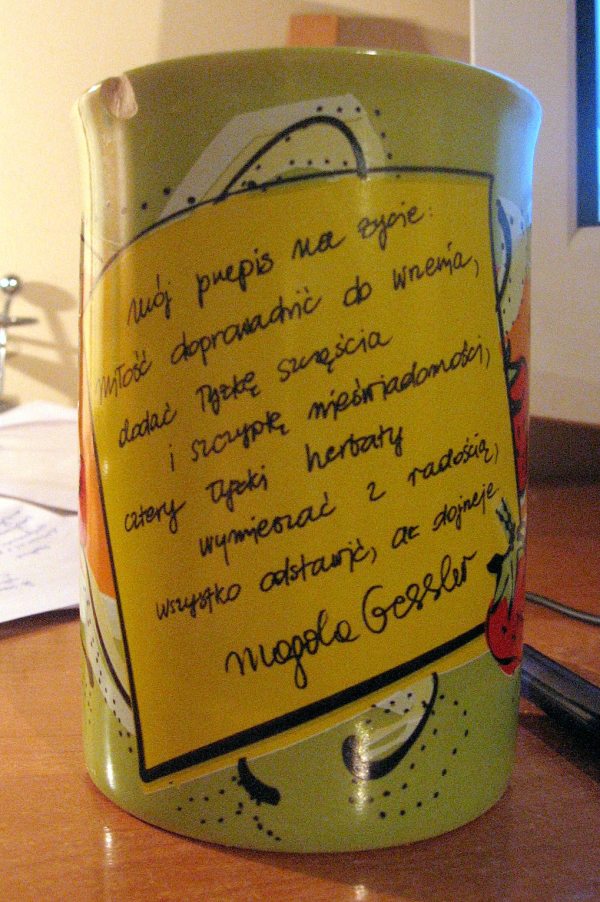 Mój przepis na życie:
miłość doprowadzić do wrzenia,
dodać łyżkę szczęścia
i szczyptę nieświadomości,
cztery łyżki herbaty
wymieszać z radością,
wszystko odstawić, aż dojrzeje
Magda Gessler